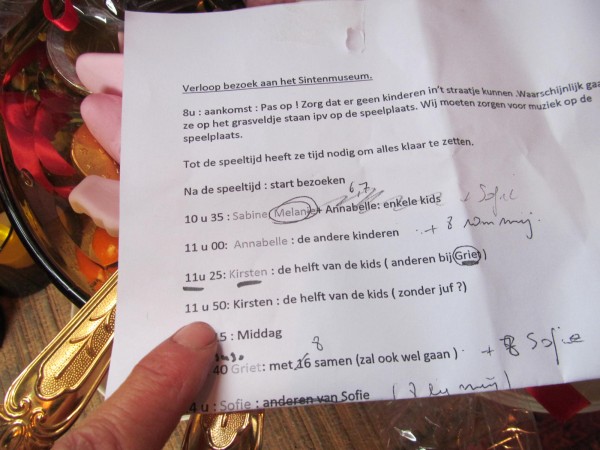 Verloop bezoek aan het Sintenmuseum.
8u : aankomst : Pas op ! Zorg dat er geen kinderen in't straatje kunnen .Waarschijnlijk gaa
ze op het grasveldje staan ipv op de speelplaats. Wij moeten zorgen voor muziek op de
speelplaats.
Tot de speeltijd heeft ze tijd nodig om alles klaar te zetten.
Na de speeltijd : start bezoeken
6,7
10 u 35 : Sabine Melanie + Annabelle: enkele kids + Sofie
11 u 00: Annabelle : de andere kinderen + 8
11u 25: Kirsten : de helft van de kids ( anderen bij Griet)
11 u 50: Kirsten : de helft van de kids ( zonder juf ?)
15 : Middag
8
40 Griet: met 16 samen (zal ook wel gaan ) + 8 Sofie
4 u : Sofie : anderen van Sofie